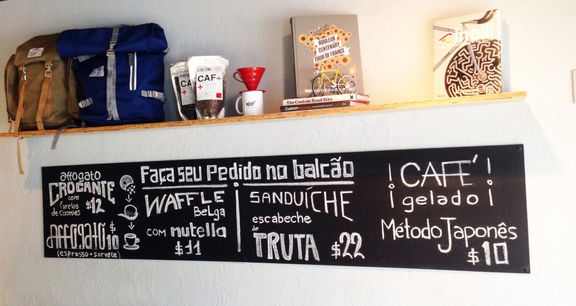 Faça seu Pedido no balcão
affogato
CROCANTE
com
farelos
de cookies
$12
Affogato $10
(espresso + sorvete)
WAFFLE
Belga
com nutella
$11
SANDUÍCHE
escabeche
de
TRUTA $22
¡CAFÉ!
¡gelado!
Método Japonês
$10
CAF
ROULEUR
CENTENARY
TOUR DE FRANCE
The Custom Road Bike